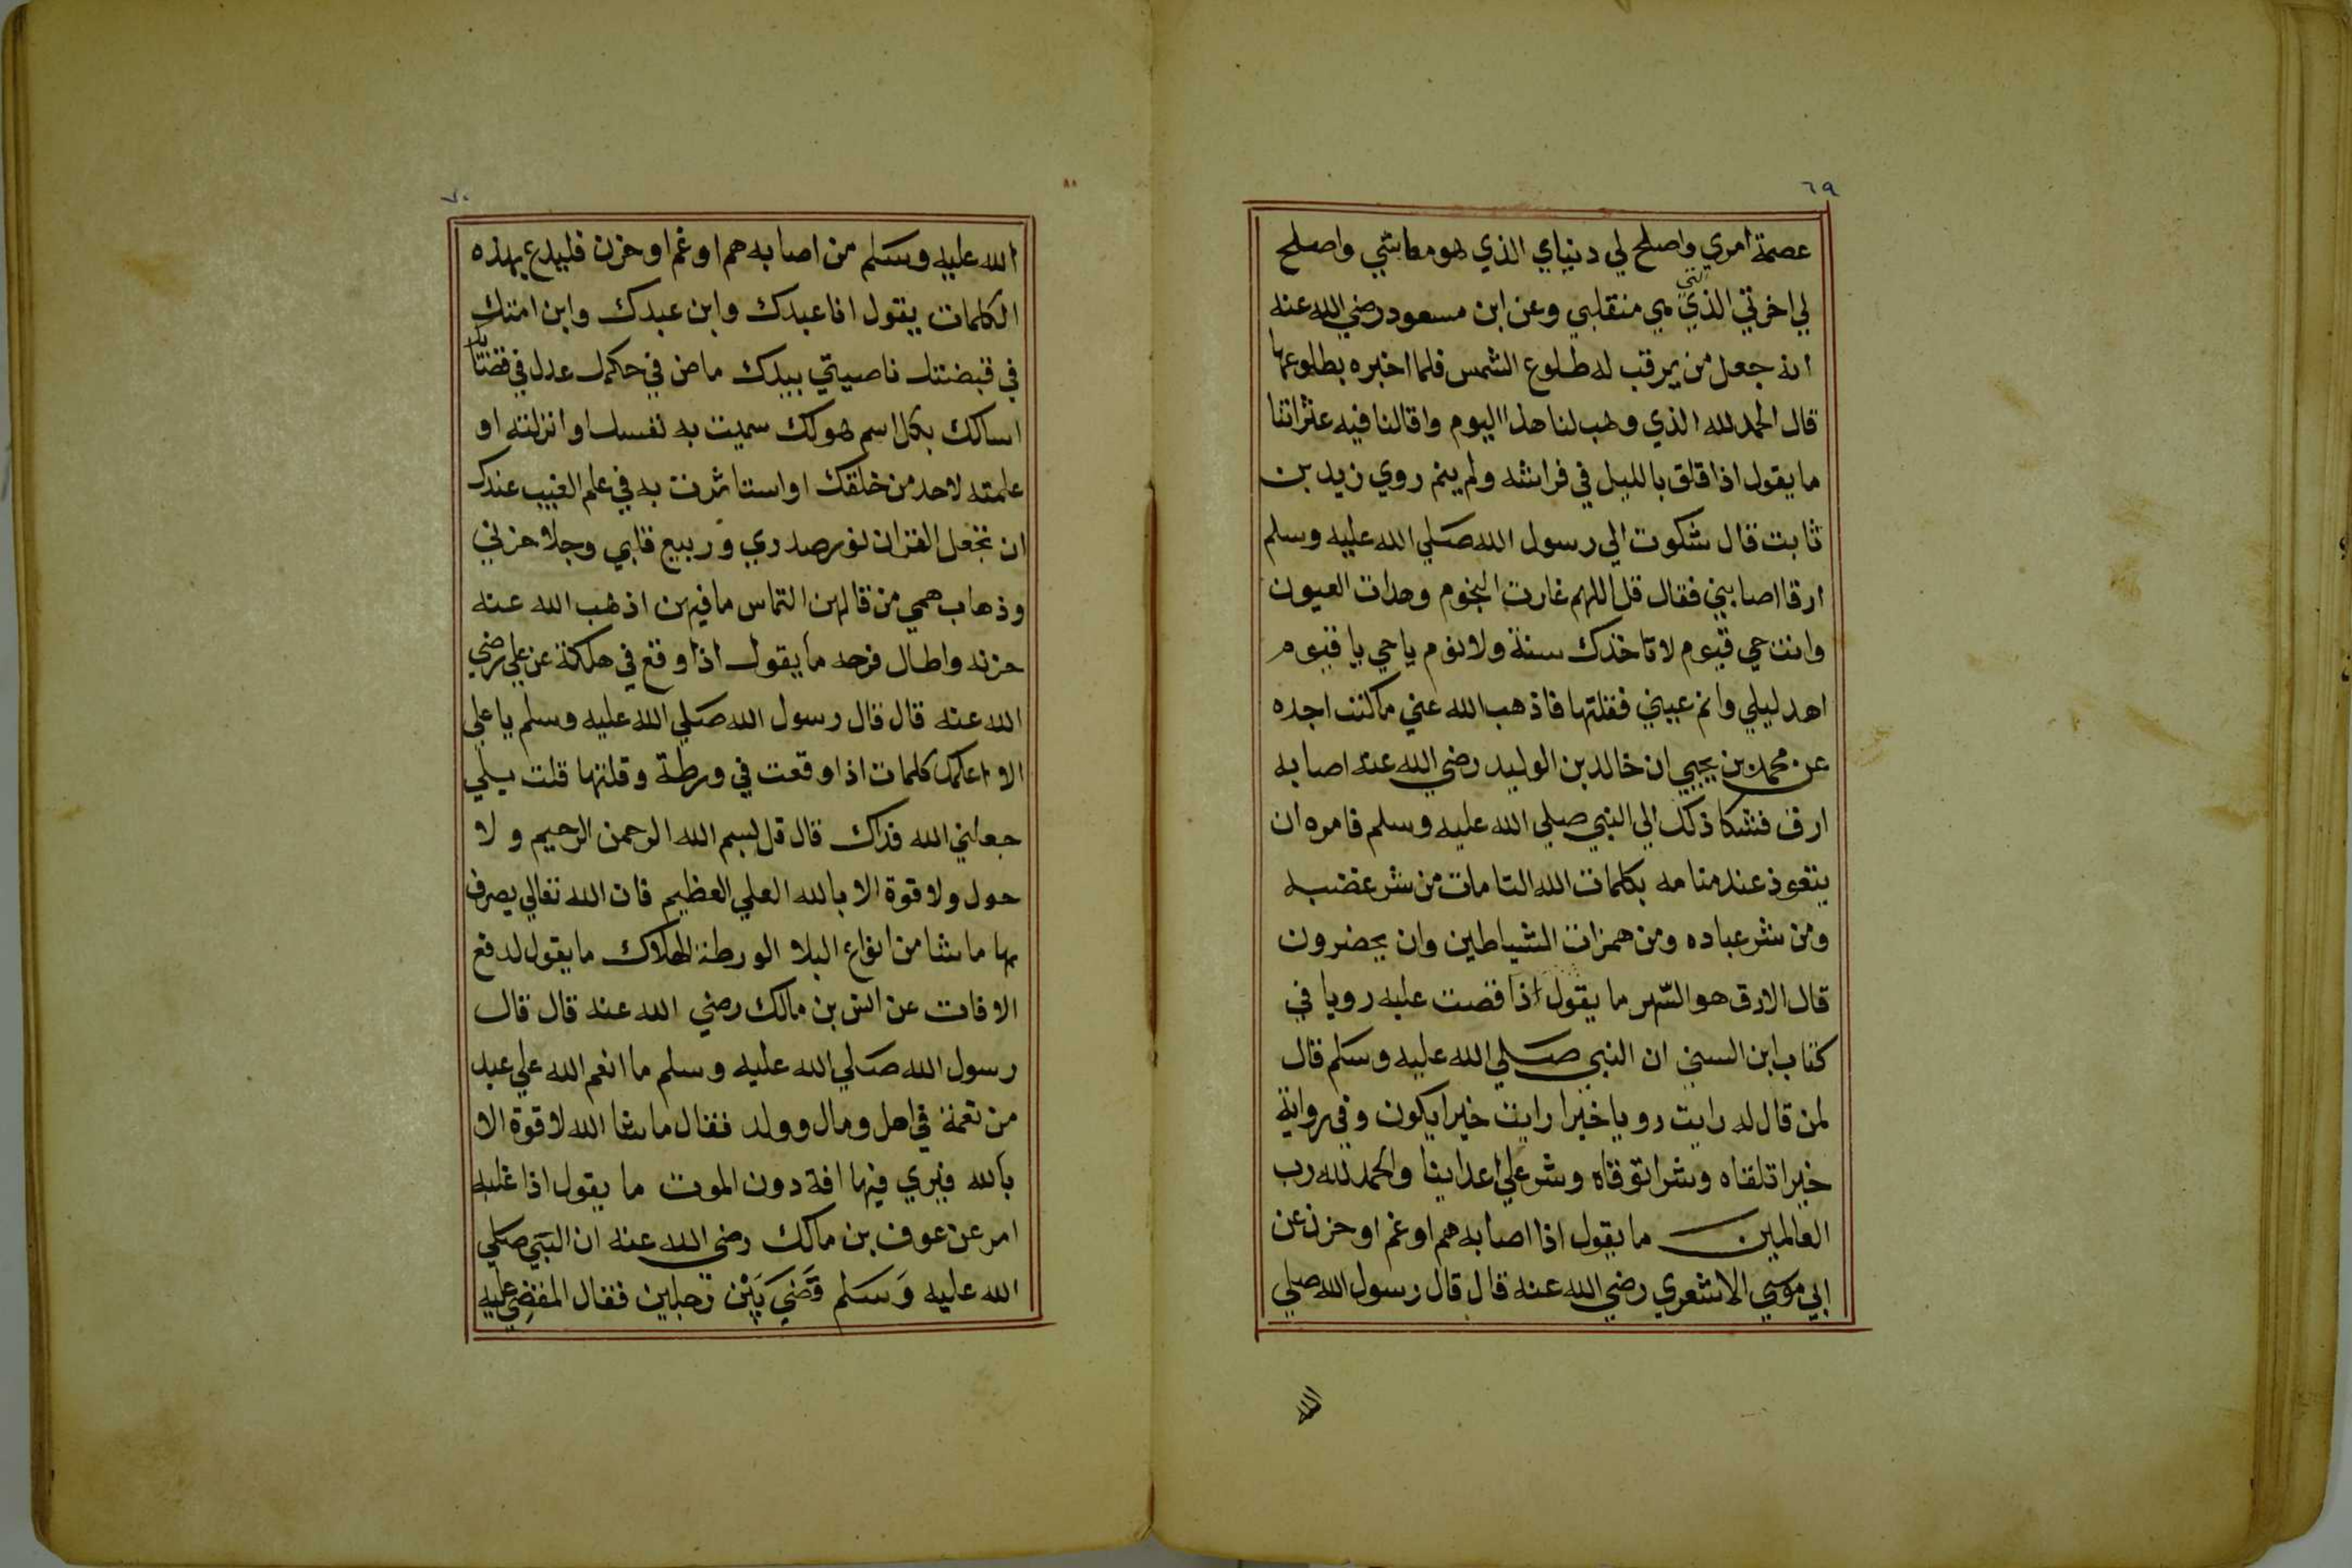 ٦٩
عصمة امري واصلح لي دنياي الذي هو معاشي واصلح
التي
لي اخرتي الذي هي منقلبي وعن ابن مسعود رضي الله عنه
انه جعل من يرقب له طلوع الشمس فلما اخبره بطلوعها
قال الحمد لله الذي وهب لنا هذا اليوم واقالنا فيه عثراتنا
ما يقول اذا قلق بالليل في فراشه ولم ينم روي زيد بن
ثابت قال شكوت الي رسول الله صلي الله عليه وسلم
ارقا اصابني فقال قل اللهم غارت النجوم وهدات العيون
وانت حي قيوم لا تاخذك سنة ولا نوم يا حي يا قيوم
اهد ليلي وانم عيني فقلتها فاذهب الله عني ما كنت اجده
عن محمد بن يحيي ان خالد بن الوليد رضي الله عنه اصابه
ارق فشكا ذلك الي النبي صلي الله عليه وسلم فامره ان
يتعوذ عند منامه بكلمات الله التامات من شر غضبه
ومن شر عباده ومن همزات الشياطين وان يحضرون
قال الارق هو السهر ما يقول اذا قصت عليه رويا في
كتاب ابن السني ان النبي صلي الله عليه وسلم قال
لمن قال له رايت رويا خيرا رايت خيرا يكون وفي رواية
خيرا تلقاه وشرا توقاه وشر علي اعداينا والحمد لله رب
العالمين ما يقول اذا اصابه هم او غم او حزن عن
ابي موسي الاشعري رضي الله عنه قال قال رسول الله صلي
الله
٧٠
الله عليه وسلم من اصابه هم او غم او حزن فليدع بهذه
الكلمات يقول انا عبدك وابن عبدك وابن امتك
في قبضتك ناصيتي بيدك ماض في حكمك عدل في قضاؤك
اسالك بكل اسم هو لك سميت به نفسك او انزلته او
علمته لاحد من خلقك او استاثرت به في علم الغيب عندك
ان تجعل القران نور صدري وربيع قلبي وجلا حزني
وذهاب همي من قالهن التماس ما فيهن اذهب الله عنه
حزنه واطال فرحه ما يقول اذا وقع في هلكة عن علي رضي
الله عنه قال قال رسول الله صلي الله عليه وسلم يا علي
الا اعلمك كلمات اذا وقعت في ورطة وقلتها قلت بلي
جعلني الله فداك قال قل بسم الله الرحمن الرحيم ولا
حول ولا قوة الا بالله العلي العظيم فان الله تعالي يصرف
بها ما شا من انواع البلا الورطة الهلاك ما يقول لدفع
الافات عن انس بن مالك رضي الله عنه قال قال
رسول الله صلي الله عليه وسلم ما انعم الله علي عبد
من نعمة في اهل ومال وولد فقال ما شا الله لا قوة الا
بالله فيري فيها افة دون الموت ما يقول اذا غلبه
امر عن عوف بن مالك رضي الله عنه ان النبي صلي
الله عليه وسلم قضي بين رجلين فقال المقضي عليه